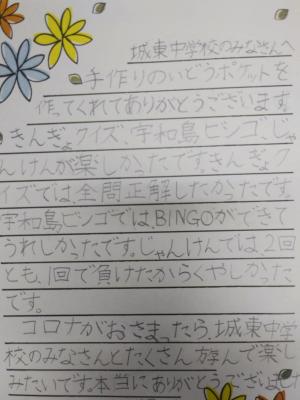 城東中学校のみなさんへ
手作りのいどうポケットを
作ってくれてありがとうございます。
きんぎょクイズ、宇和島ビンゴ、じゃ
んけんが楽しかったです。きんぎょク
イズでは、全問正解したかったです。
宇和島ビンゴでは、BINGOができて
うれしかったです。じゃんけんでは、2回
とも、1回で負けたからくやしかった
です。
コロナがおさまったら、城東中学
校のみなさんとたくさん遊んで楽し
みたいです。本当にありがとうございました